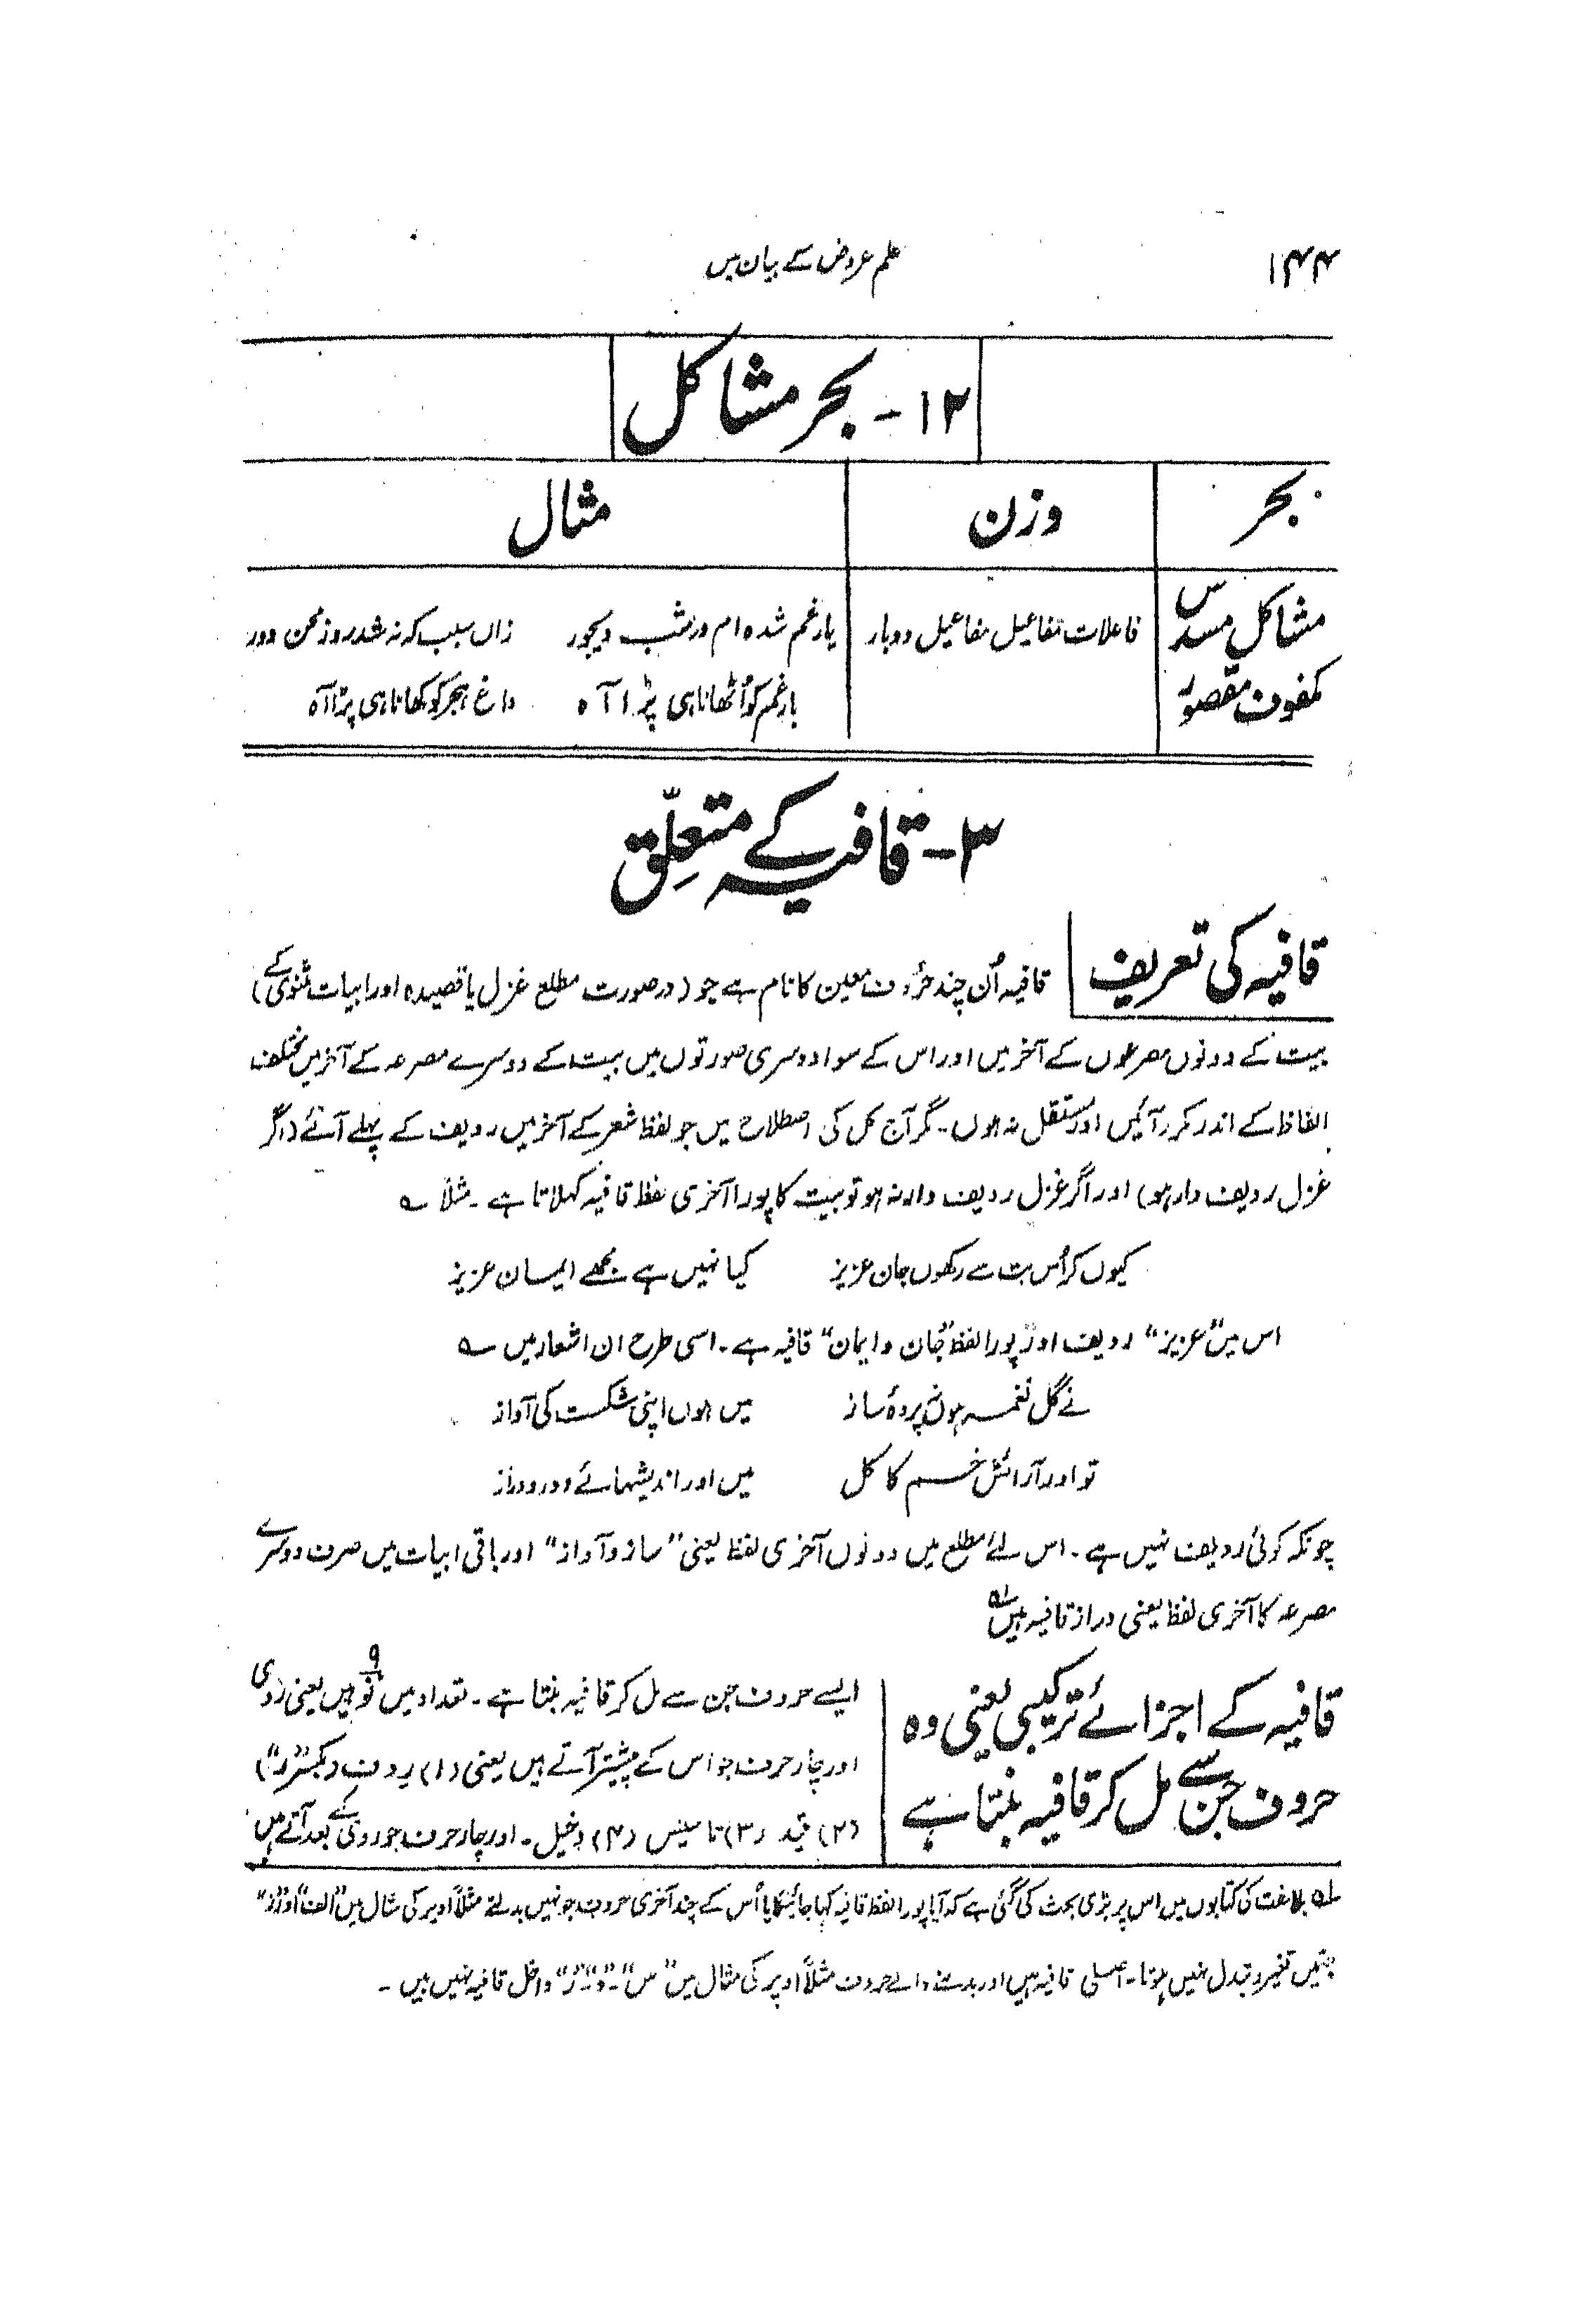 ۱۴۴
علم عروض کے بیان میں
۱۲- بحر مشاکل
بحر
وزن
مثال
مشاکل مسدس
مکفوف مقصور
فاعلات مفاعیل مفاعیل دوبار
یار غم شدہ ام در شب دیجور
زاں سبب کہ نہ شد روز محن دور
بار غم کو اُٹھانا ہی پڑا آہ
داغ ہجر کو کھانا ہی پڑا آہ
۳- قافیہ کے متعلِّق
قافیہ کی تعریف
قافیہ اُن چند حرُوف معین کا نام ہے جو (در صورت مطلع غزل یا قصیدہ اور ابیات مثنوی کے)
بیت کے دونوں مصرعوں کے آخر میں اور اس کے سوا دوسری صورتوں میں بیت کے دوسرے مصرعہ کے آخر میں مختلف
الفاظ کے اندر مکرر آئیں اور مستقل نہ ہوں۔ مگر آج کل کی اصطلاح میں جو لفظ شعر کے آخر میں ردیف کے پہلے آئے (اگر
غزل ردیف دار ہو) اور اگر غزل ردیف دار نہ ہو تو بیت کا پورا آخری لفظ قافیہ کہلاتا ہے۔ مثلاً ؎
کیوں کر اُس بت سے رکھوں جان عزیز
کیا نہیں ہے مجھے ایمان عزیز
اس میں "عزیز" ردیف اور پورا لفظ "جان و ایمان" قافیہ ہے۔ اسی طرح ان اشعار میں ؎
نے گل نغمہ ہوں نہ پردۂ ساز
میں ہوں اپنی شکست کی آواز
تو اور آرائش خم کاکل
میں اور اندیشہائے دور و دراز
چونکہ کوئی ردیف نہیں ہے۔ اس لئے مطلع میں دونوں آخری لفظ یعنی "ساز و آواز" اور باقی ابیات میں صرف دوسرے
مصرعہ کا آخری لفظ یعنی دراز قافیہ ہیں؎۱
قافیہ کے اجزائے ترکیبی یعنی وہ
حروف جن سے مل کر قافیہ بنتا ہے
ایسے حروف جن سے مل کر قافیہ بنتا ہے۔ تعداد میں نو ۹ ہیں یعنی رَوِی
اور چار حرف جو اس کے پیشتر آتے ہیں یعنی (۱) رِدف (بکسر "ر")
(۲) قید (۳) تاسیس (۴) دخیل۔ اور چار حرف جو روی کے بعد آتے ہیں
؎۱ بلاغت کی کتابوں میں اس پر بڑی بحث کی گئی ہے کہ آیا پورا لفظ قافیہ کہا جائیگا یا اُس کے چند آخری حروف جو نہیں بدلتے مثلاً اوپر کی مثال میں "الف" اور "ز"
جنمیں تغیر و تبدل نہیں ہوتا۔ اصلی قافیہ ہیں اور بدلنے والے حروف مثلاً اوپر کی مثال میں "س" - "و" - "ر" داخل قافیہ نہیں ہیں۔